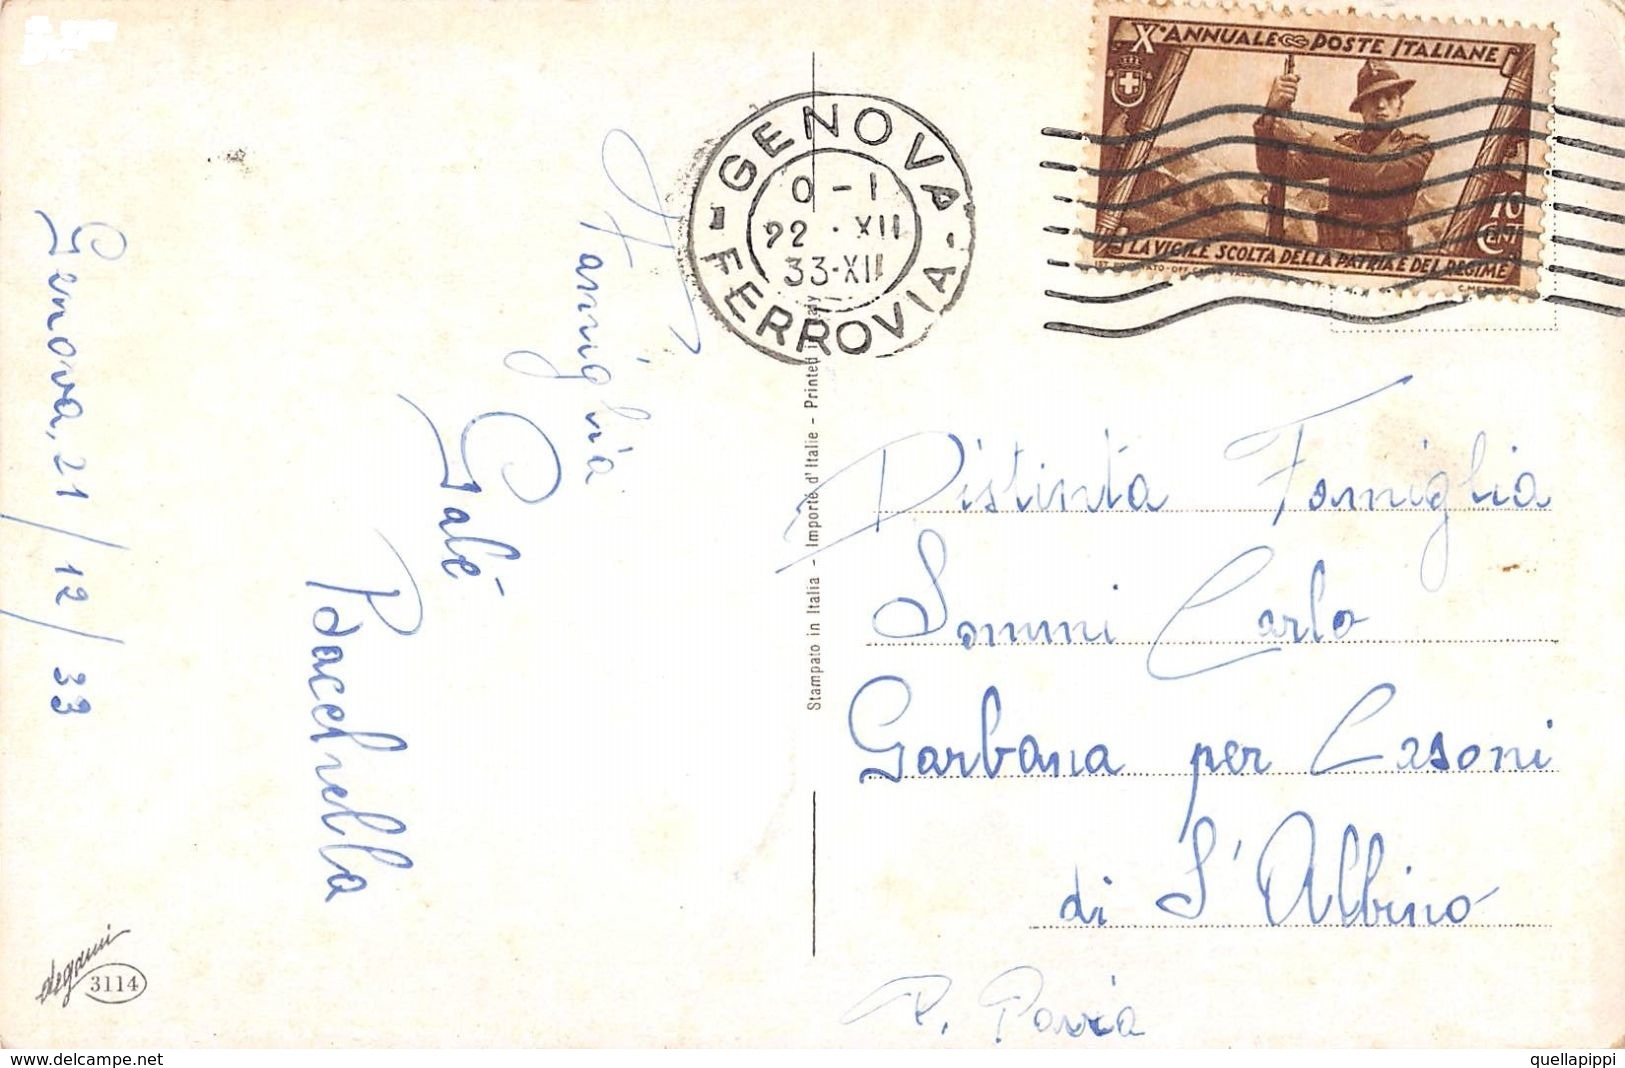 Genova, 21/12/33
Famiglia
Galé
Bacchella
degami
3114
Stampato in Italia - Importé d'Italie - Printed
GENOVA
0-1
22·XII
33·XII
FERROVIA
X° ANNUALE POSTE ITALIANE
70
CENT
LA VIGILE SCOLTA DELLA PATRIA E DEL REGIME
Distinta Famiglia
Sommi Carlo
Garbana per Cesoni
di S'Albino
P. Pavia
delcampe.net
quellapippi